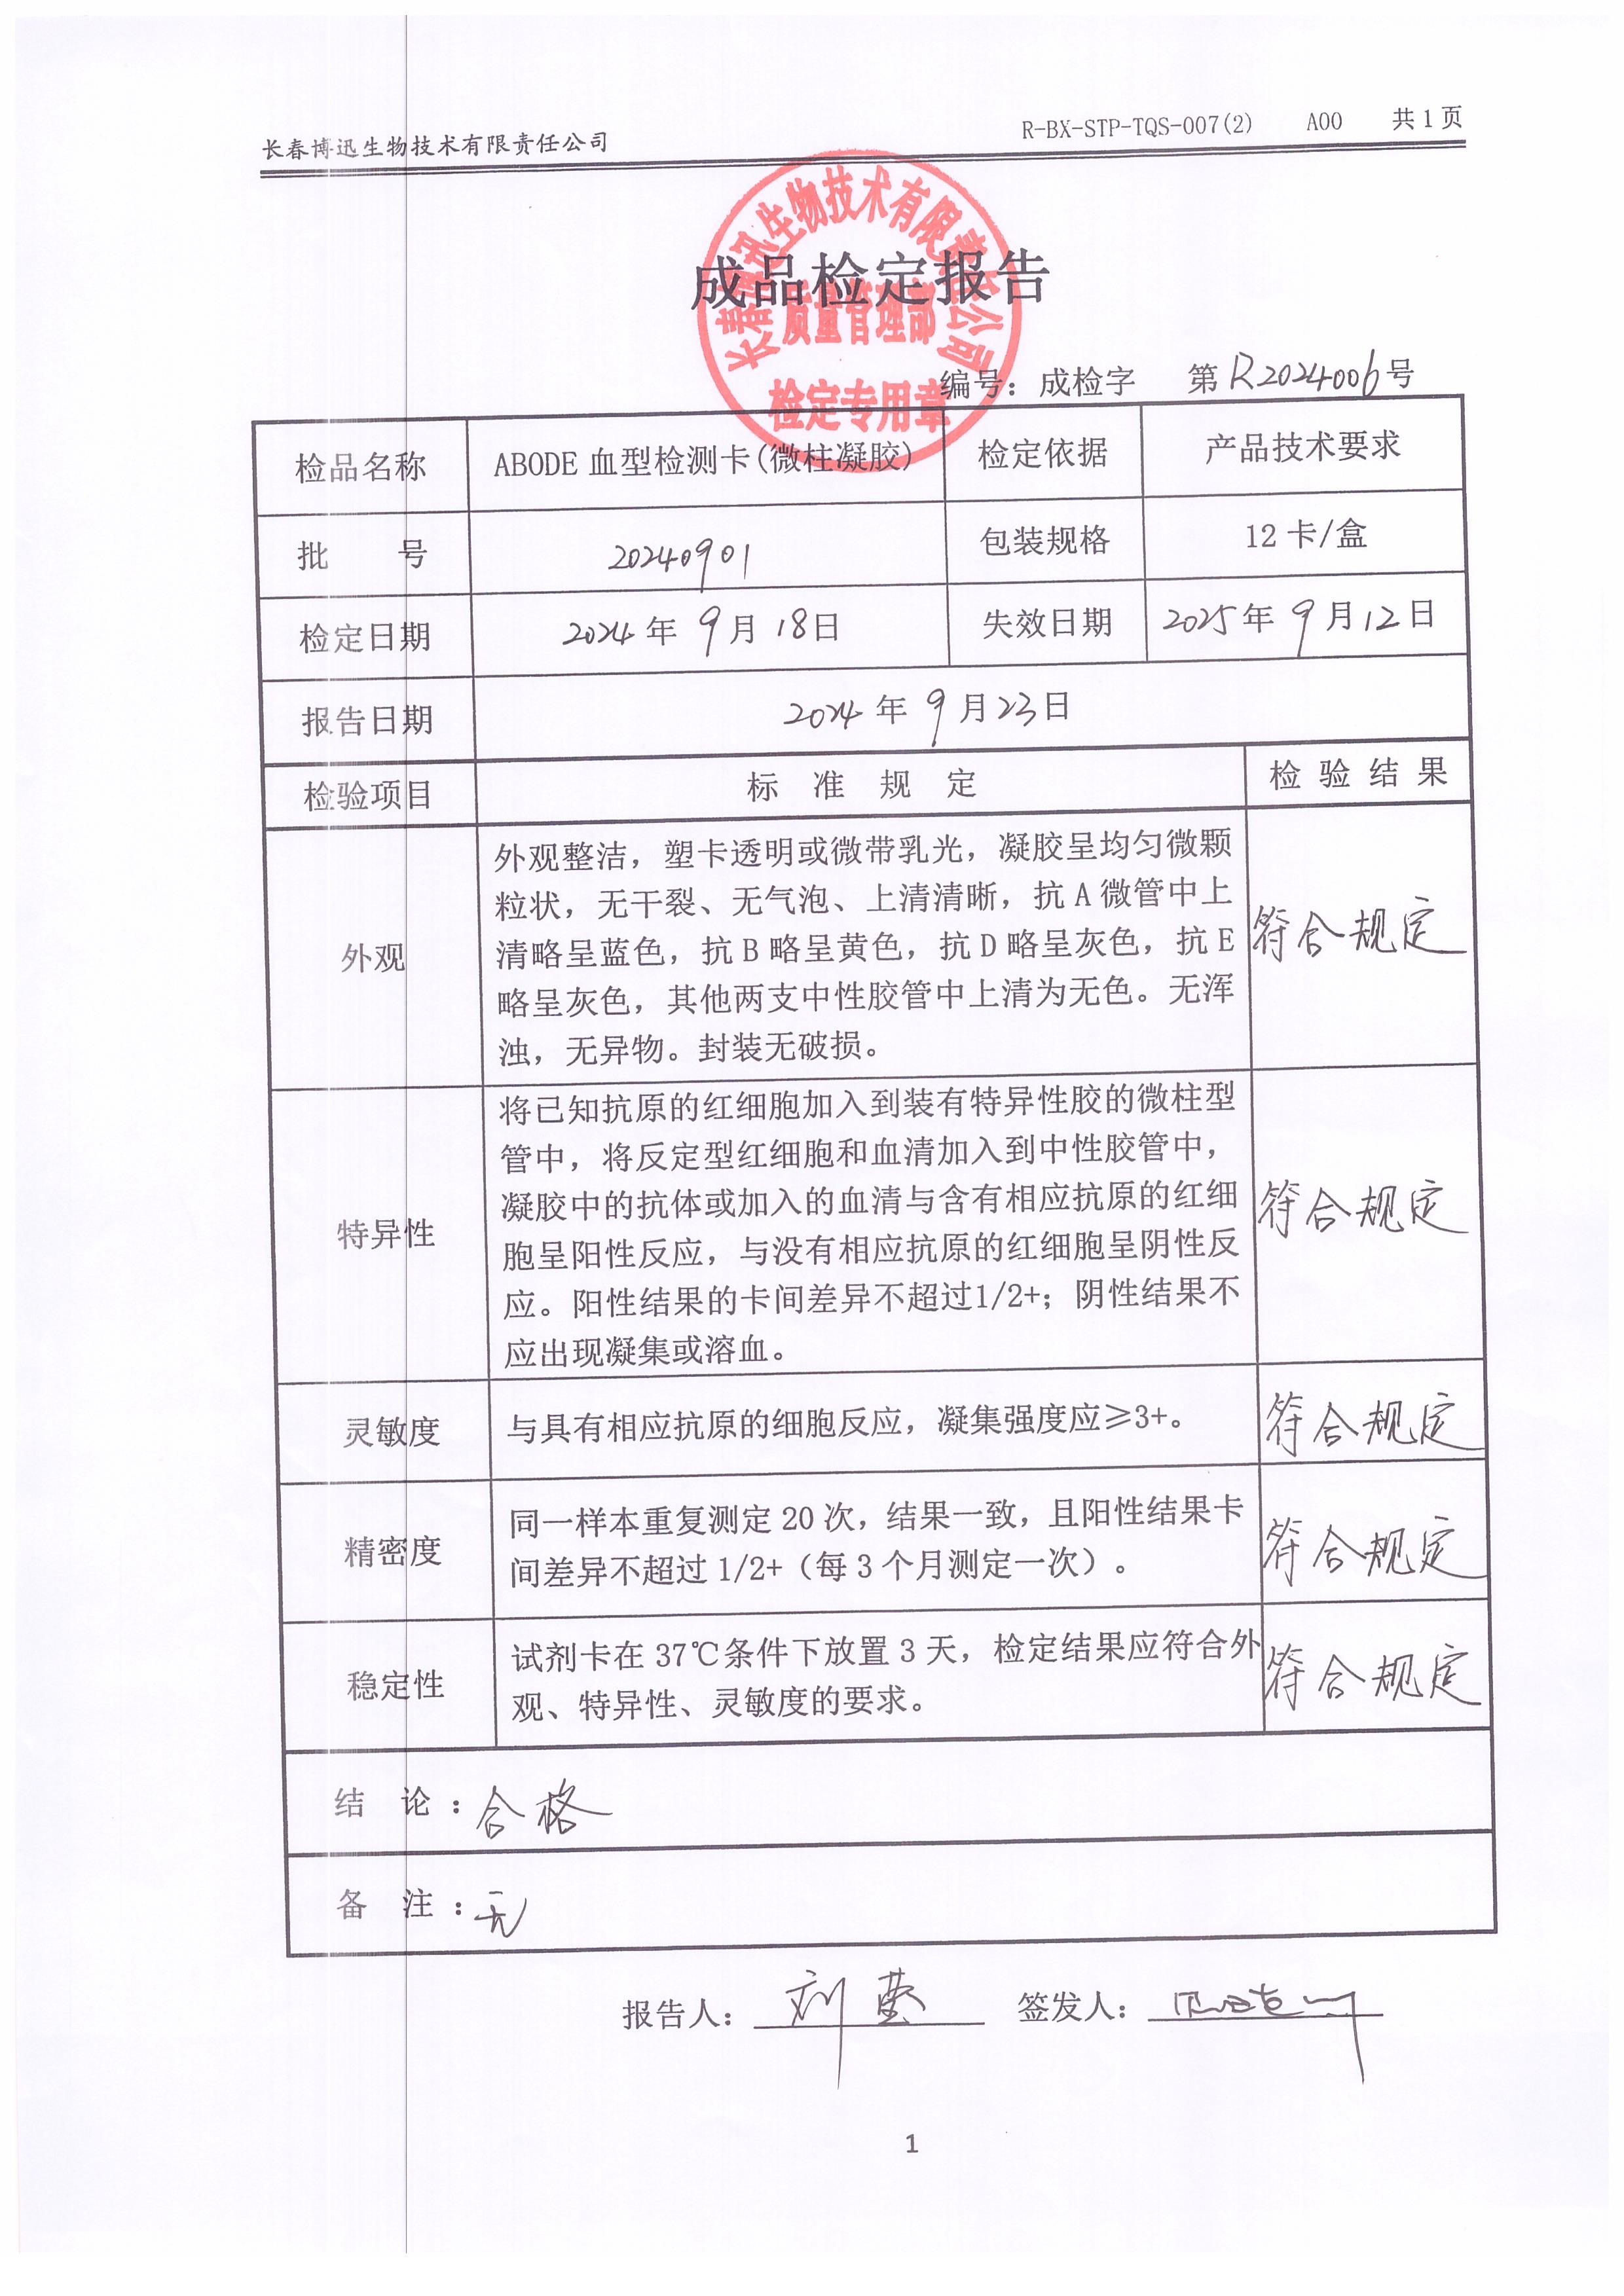 长春博迅生物技术有限责任公司 R-BX-STP-TQS-007(2) A00 共1页
长春博迅生物技术有限责任公司
成品检定报告
质量管理部
检定专用章
编号：成检字 第R2024006号
检品名称 ABODE血型检测卡(微柱凝胶) 检定依据 产品技术要求
批 号 20240901 包装规格 12卡/盒
检定日期 2024年9月18日 失效日期 2025年9月12日
报告日期 2024年9月23日
检验项目 标准规定 检验结果
外观整洁，塑卡透明或微带乳光，凝胶呈均匀微颗
粒状，无干裂、无气泡、上清清晰，抗A微管中上
外观 清略呈蓝色，抗B略呈黄色，抗D略呈灰色，抗E 符合规定
略呈灰色，其他两支中性胶管中上清为无色。无浑
浊，无异物。封装无破损。
将已知抗原的红细胞加入到装有特异性胶的微柱型
管中，将反定型红细胞和血清加入到中性胶管中，
凝胶中的抗体或加入的血清与含有相应抗原的红细
特异性 胞呈阳性反应，与没有相应抗原的红细胞呈阴性反 符合规定
应。阳性结果的卡间差异不超过1/2+；阴性结果不
应出现凝集或溶血。
灵敏度 与具有相应抗原的细胞反应，凝集强度应≥3+。 符合规定
精密度 同一样本重复测定20次，结果一致，且阳性结果卡 符合规定
间差异不超过1/2+（每3个月测定一次）。
稳定性 试剂卡在37℃条件下放置3天，检定结果应符合外 符合规定
观、特异性、灵敏度的要求。
结 论：合格
备 注：无
报告人：刘莹 签发人：
1